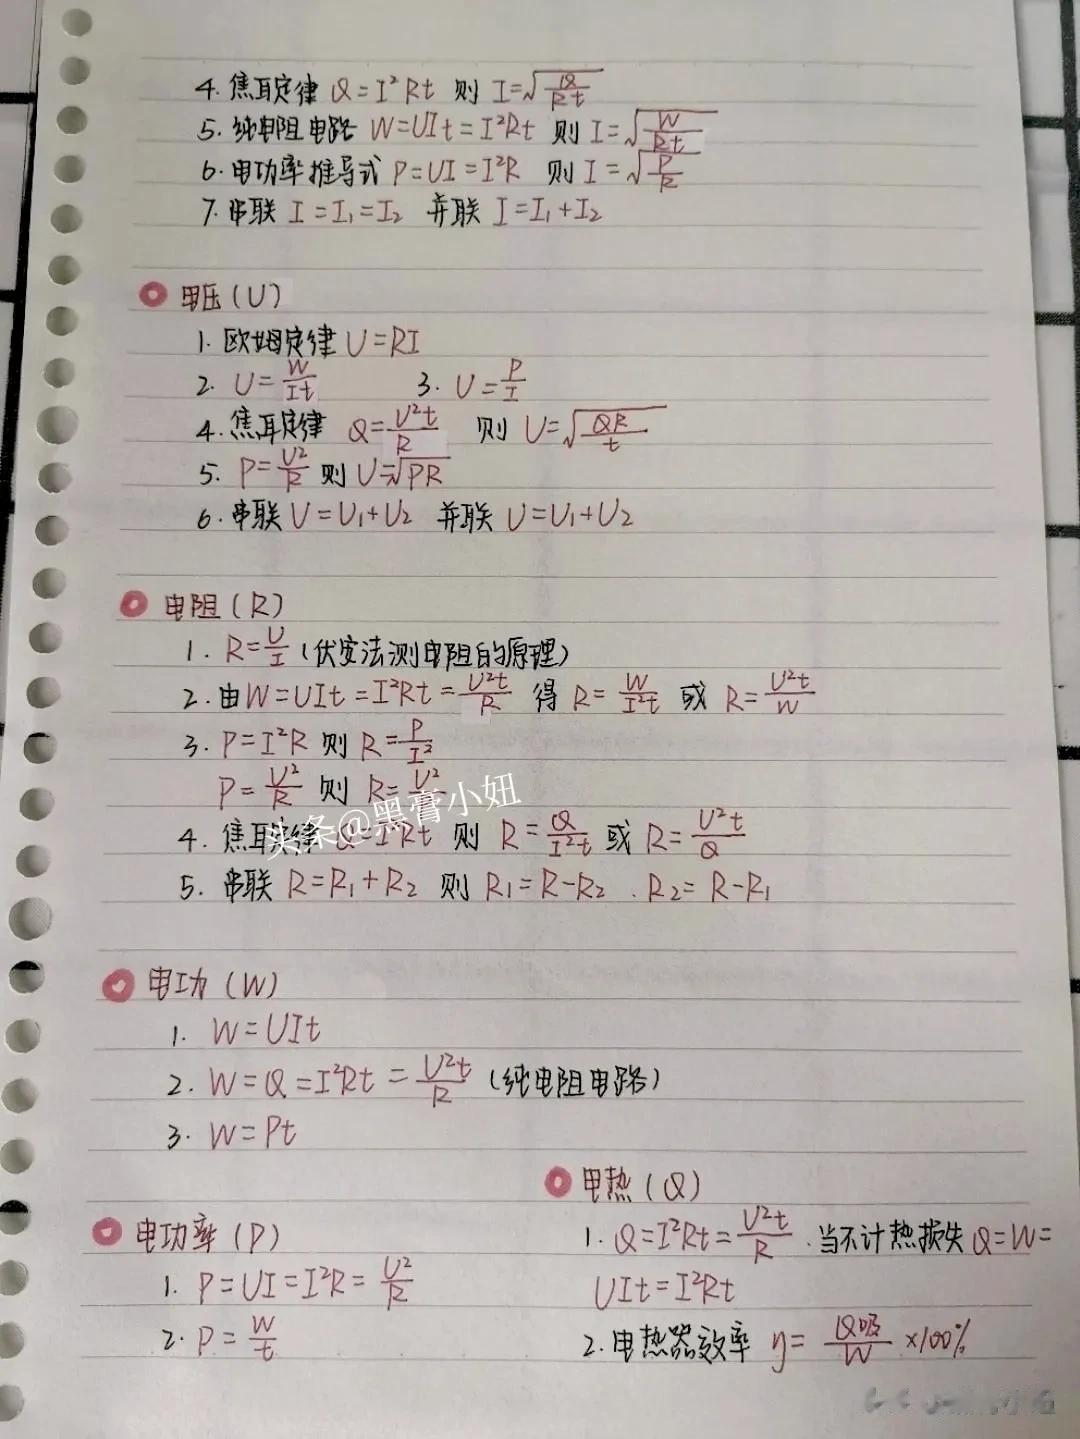 4. 焦耳定律 Q=I²Rt 则 I=√(Q/Rt)
5. 纯电阻电路 W=UIt=I²Rt 则 I=√(W/Rt)
6. 电功率推导式 P=UI=I²R 则 I=√(P/R)
7. 串联 I=I₁=I₂ 并联 I=I₁+I₂
电压(U)
1. 欧姆定律 U=RI
2. U=W/It 3. U=P/I
4. 焦耳定律 Q=U²t/R 则 U=√(QR/t)
5. P=U²/R 则 U=√PR
6. 串联 U=U₁+U₂ 并联 U=U₁+U₂
电阻(R)
1. R=U/I (伏安法测电阻的原理)
2. 由W=UIt=I²Rt=U²t/R 得 R=W/I²t 或 R=U²t/W
3. P=I²R 则 R=P/I²
P=U²/R 则 R=U²
头条@黑膏小妞
4. 焦耳定律 Q=I²Rt 则 R=Q/I²t 或 R=U²t/Q
5. 串联 R=R₁+R₂ 则 R₁=R-R₂ . R₂=R-R₁
电功(W)
1. W=UIt
2. W=Q=I²Rt=U²t/R (纯电阻电路)
3. W=Pt
电功率(P)
1. P=UI=I²R=U²/R
2. P=W/t
电热(Q)
1. Q=I²Rt=U²t/R . 当不计热损失 Q=W=
UIt=I²Rt
2. 电热器效率 η=Q吸/W ×100%